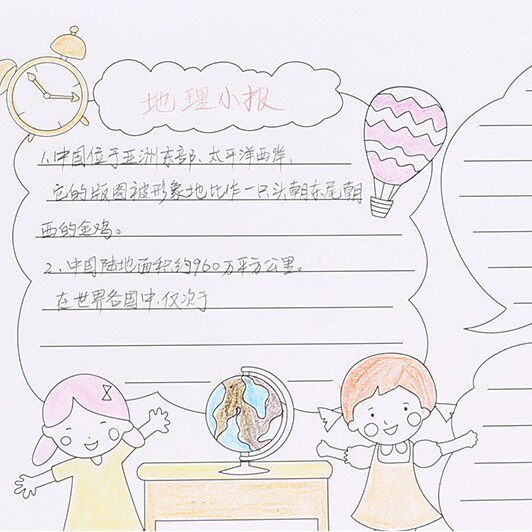 地理小报
1、中国位于亚洲东部、太平洋西岸，
它的版图被形象地比作一只头朝东尾朝
西的金鸡。
2、中国陆地面积约960万平方公里。
在世界各国中，仅次于